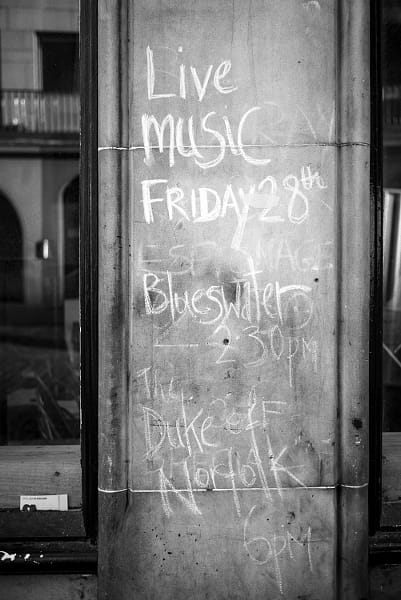 Live
MUSIC
FRIDAY 28th
Blueswater
— 2.30pm
The
Duke of
Norfolk
6pm